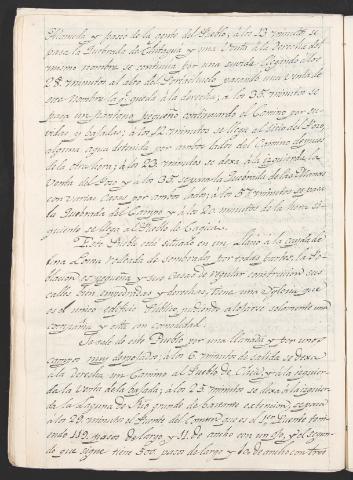 Alameda y paseo de la gente del Pueblo; a los 13 minutos se
pasa la Quebrada de y una Venta a la derecha del
mismo nombre se continua por una llegando a los
28 minutos al alto del Portachuelo pasando una Venta de
este nombre la q.e queda a la derecha; a los 35 minutos se
pasa un pantano pequeño continuando el Camino por su-
vidas y bajadas; a los 12 minutos se llega al sitio del Pozo,
alguna agua detenida por ambos lados del Camino
de la otra hora; a los 23 minutos se dexa a la izquierda la
Venta del Pozo y a los 35 se pasa la Quebrada de las
con varias Casas por ambos lados; a los 57 minutos se pasa
la Quebrada del Campo y a los 20 minutos de la hora si-
guiente se llega al Pueblo de Caguas.
Este Pueblo está situado en un Llano a la caida de
una Loma rodeado de sembrados por todas partes, la Po-
blacion es pequeña y sus casas de regular construccion sus
calles bien empedradas y derechas, tiene una Yglesia que
es el unico edificio Publico, pudiendo alojarse solamente una
compañia y esta con comodidad.
Se sale de este Pueblo por una llanada y por unos
campos muy despoblados; a los 6 minutos de salida se dexa
a la derecha un Camino al Pueblo de Chia, y a la izquier-
da la Venta de la bajada; a los 23 minutos se dexa a la izquier-
da la Laguna de Rio grande de bastante extension, seguida
a los 29 minutos el Puente del Comun que es el 1.er Puente teni-
endo 119 pasos de largo, y 11 de ancho con un ojo, y el segun-
do que sigue tiene 300 pasos de largo y 10 de ancho con tres